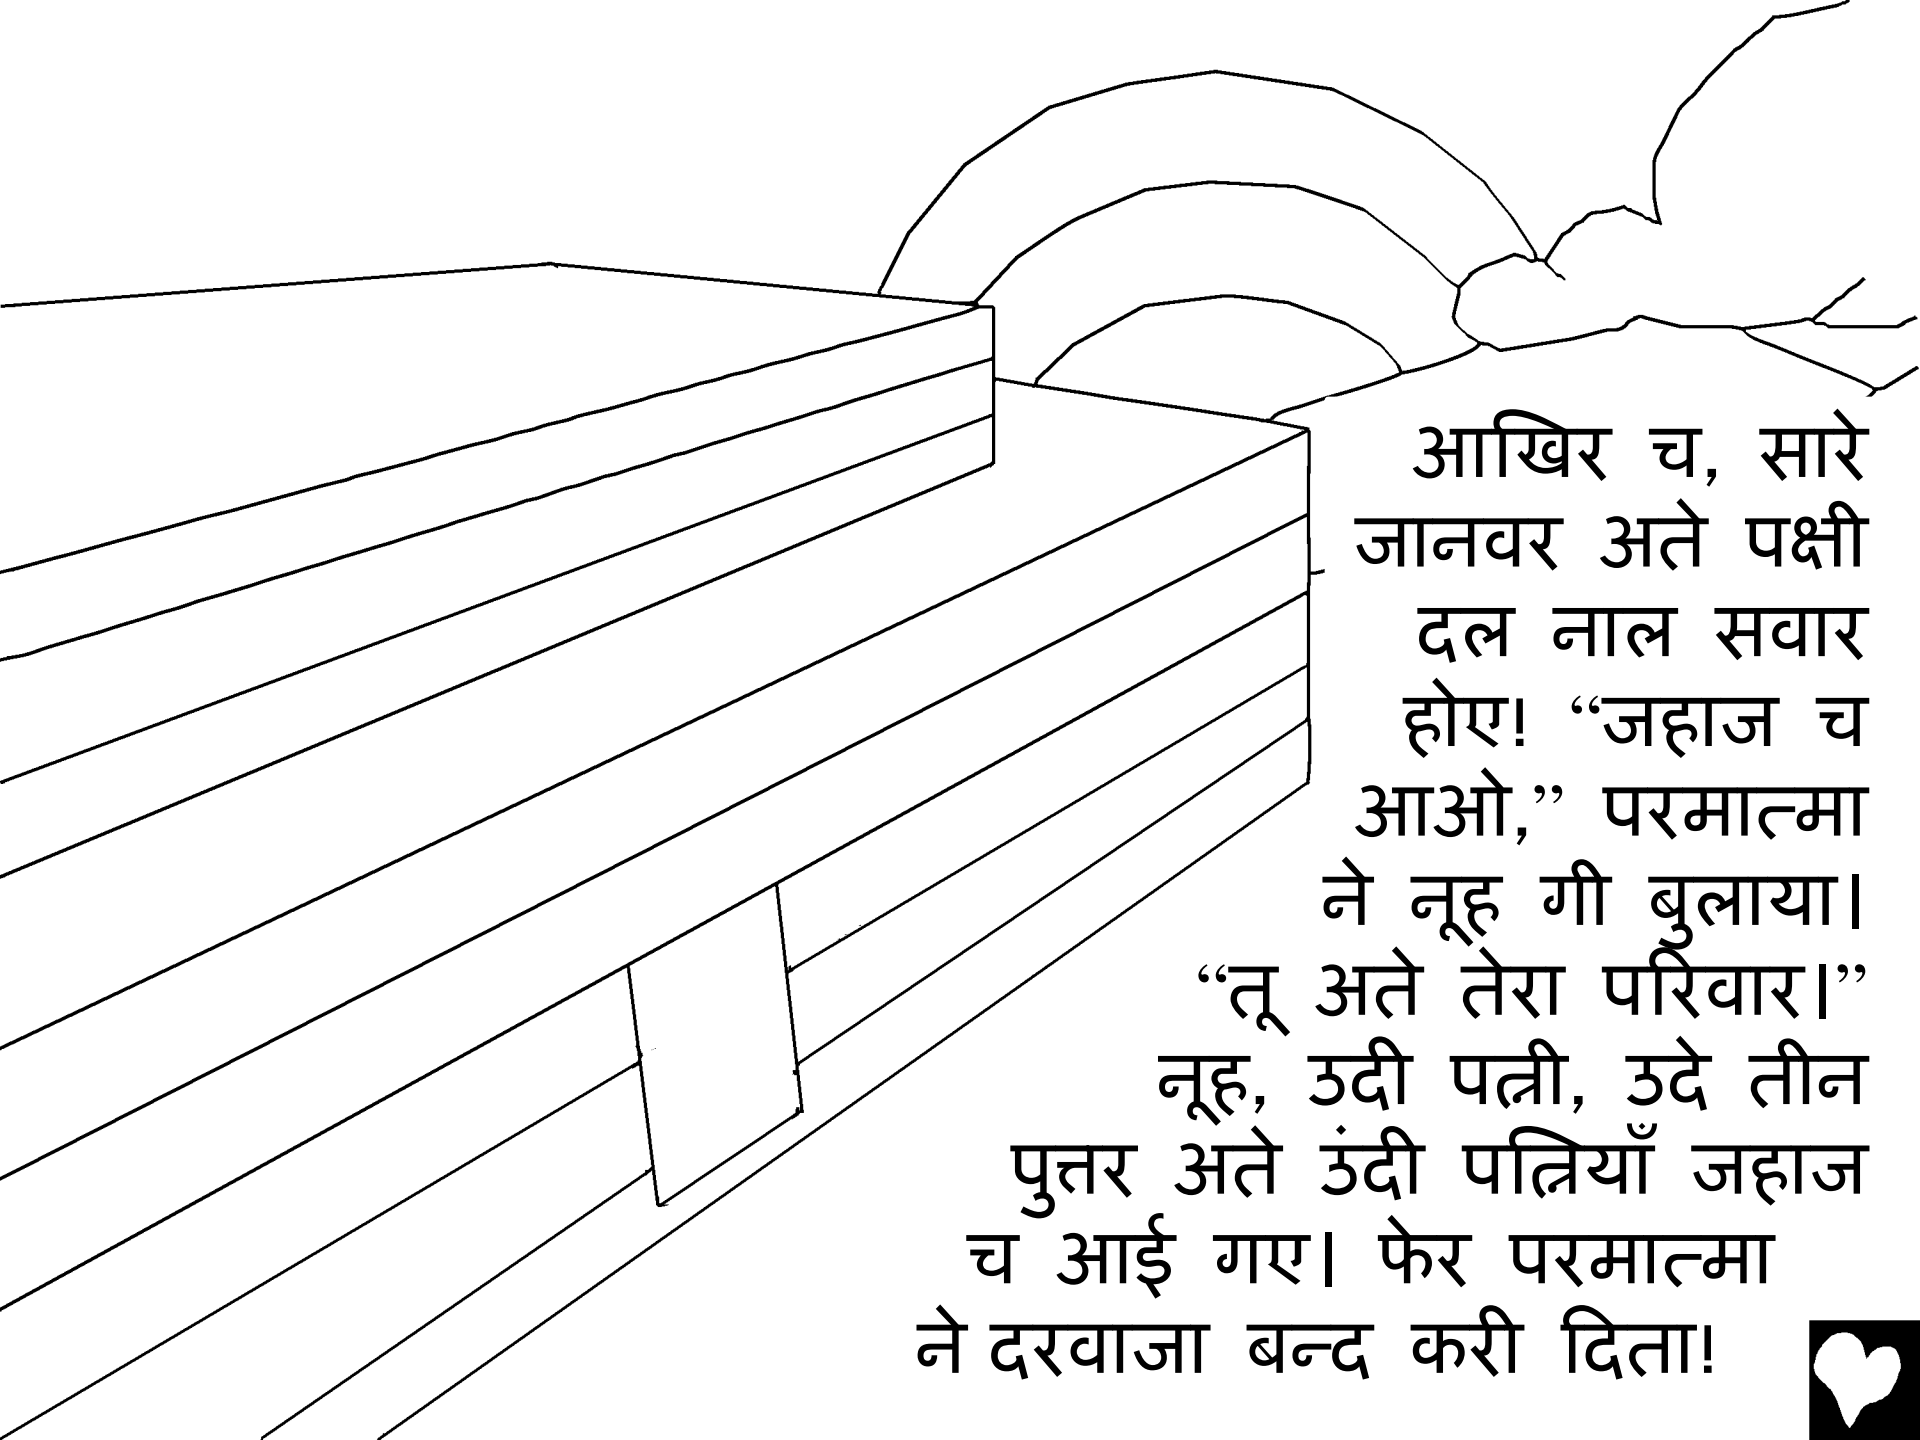 आखिर च, सारे
जानवर अते पक्षी
दल नाल सवार
होए! “जहाज च
आओ,” परमात्मा
ने नूह गी बुलाया।
“तू अते तेरा परिवार।”
नूह, उदी पत्नी, उदे तीन
पुत्तर अते उंदी पत्नियाँ जहाज
च आई गए। फेर परमात्मा
ने दरवाजा बन्द करी दिता!